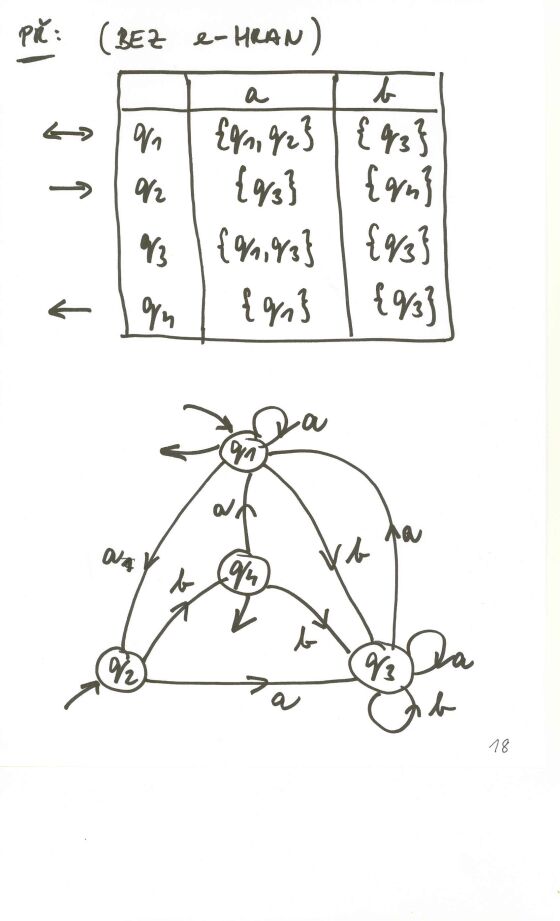 PŘ: (BEZ e-HRAN)
a b
q1 {q1,q2} {q3}
q2 {q3} {q4}
q3 {q1,q3} {q3}
q4 {q1} {q3}
q1 a
a
a b a
q4
b b
q2 q3 a
a b
18